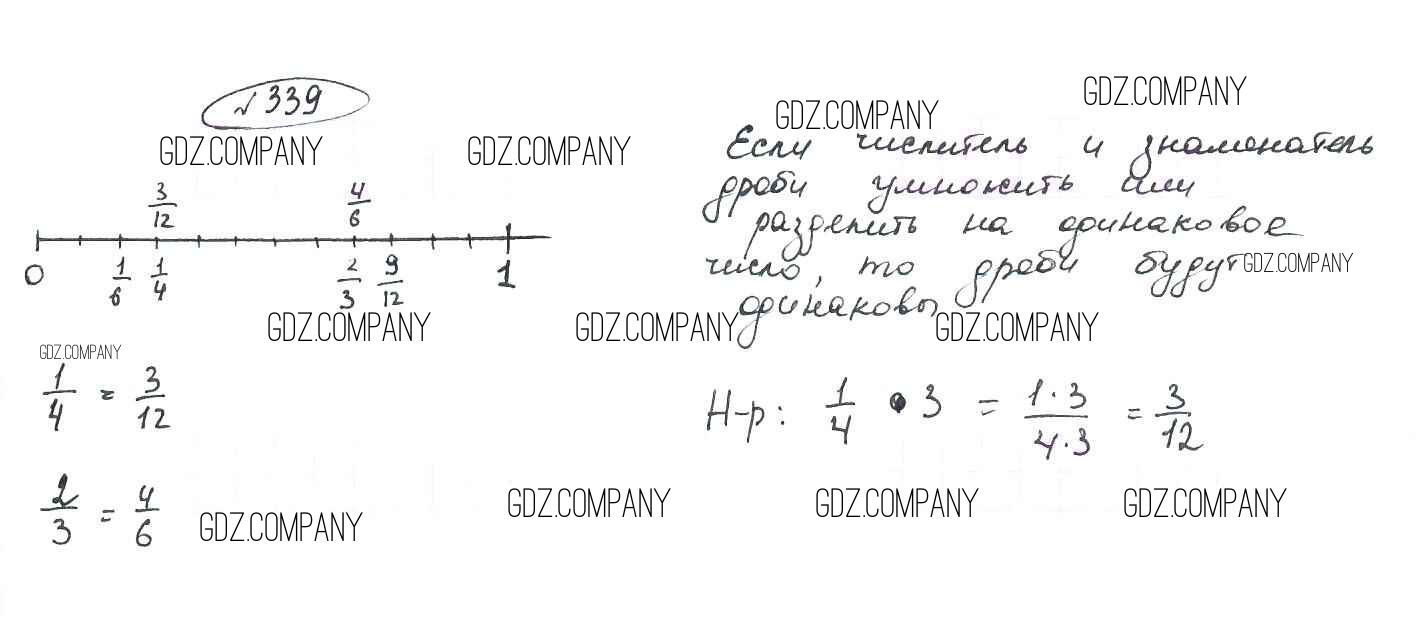 №339
GDZ.COMPANY GDZ.COMPANY
3/12 4/6
0 1/6 1/4 2/3 9/12 1
GDZ.COMPANY GDZ.COMPANY
GDZ.COMPANY
1/4 = 3/12
2/3 = 4/6
GDZ.COMPANY
GDZ.COMPANY
GDZ.COMPANY
Если числитель и знаменатель
дроби умножить или
разделить на одинаковое
число, то дроби будут
GDZ.COMPANY
одинаковы
GDZ.COMPANY
Н-р: 1/4 • 3 = 1·3/4·3 = 3/12
GDZ.COMPANY GDZ.COMPANY GDZ.COMPANY